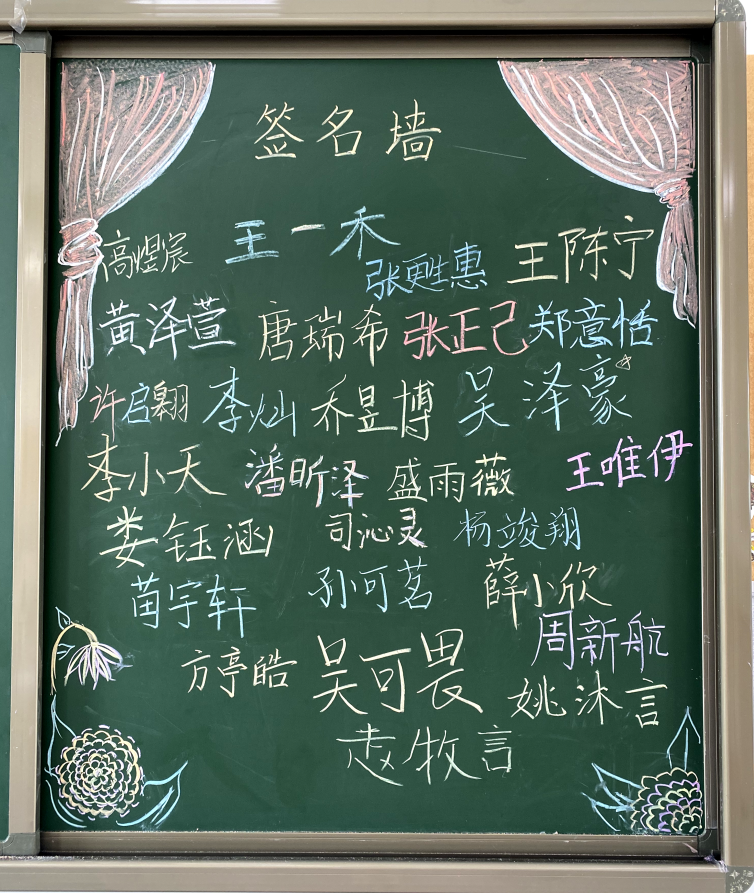 签名墙
高煜宸 王一禾 张甦惠 王陈宁
黄泽萱 唐瑞希 张正己 郑意恬
许启翱 李灿 乔昱博 吴泽豪
李小天 潘昕泽 盛雨薇 王唯伊
娄钰涵 司沁灵 杨竣翔
苗宇轩 孙可茗 薛小欣
方亭皓 吴可畏 周新航
姚沐言
牧言